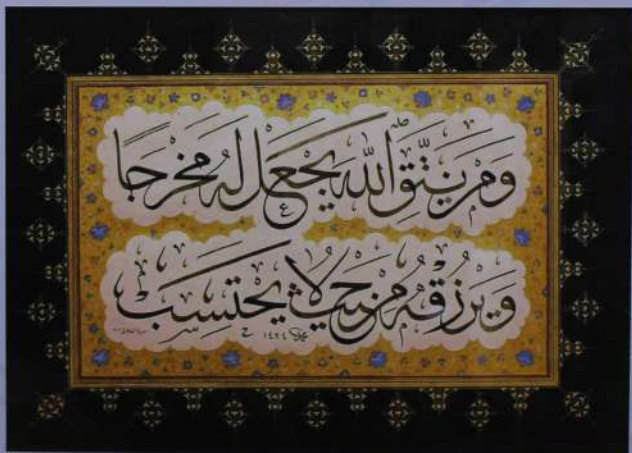 وَمَنْ يَتَّقِ اللّٰهَ يَجْعَلْ لَهُ مَخْرَجًا
وَيَرْزُقْهُ مِنْ حَيْثُ لَا يَحْتَسِبْ
١٤٢٤